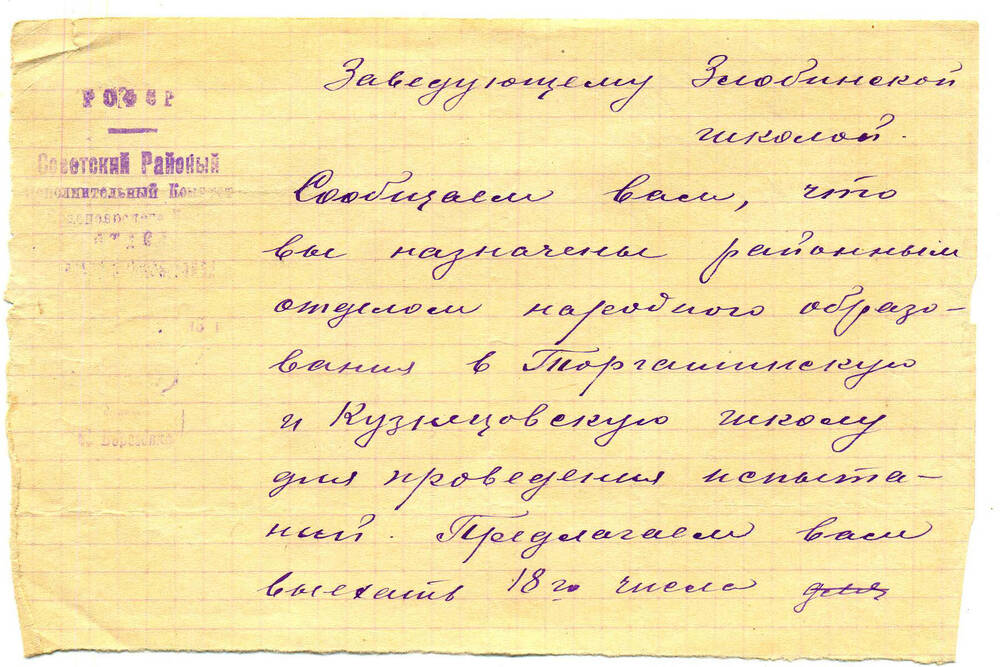 РСФСР
Советский Районый
Исполнительный Комитет
Заведующему Злобинской
школой.
Сообщаем вам, что
вы назначены районным
отделом народного образо-
вания в Торгашинскую
и Кузнецовскую школу
для проведения испыта-
ний. Предлагаем вам
выехать 18го числа для